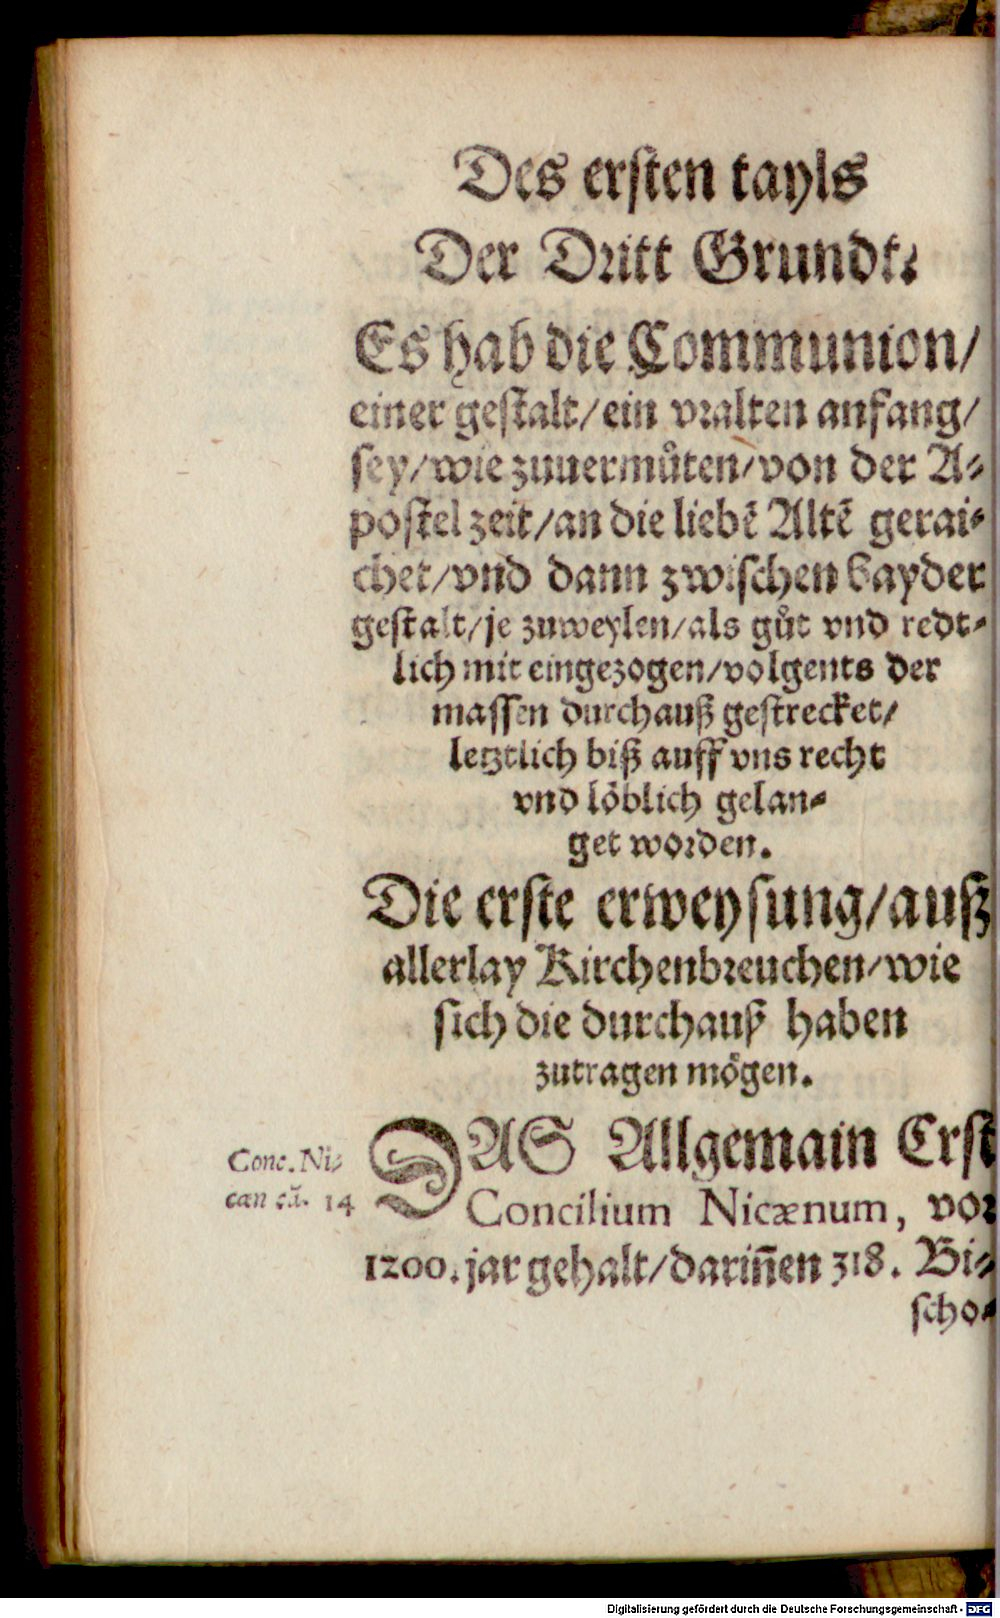 Des ersten tayls
Der Dritt Grundt:
Es hab die Communion/
einer gestalt/ein vralten anfang/
sey/wie zuuermůten/von der A-
postel zeit/an die liebē Altē gerai-
chet/vnd dann zwischen bayder
gestalt/je zuweylen/als gůt vnd redt-
lich mit eingezogen/volgents der
massen durchauß gestrecket/
letztlich biß auff vns recht
vnd löblich gelan-
get worden.
Die erste erweysung/auß
allerlay Kirchenbreuchen/wie
sich die durchauß haben
zutragen mögen.
Conc. Ni-
cæn cā. 14
DAS Allgemain Erst
Concilium Nicænum, vor
1200. jar gehalt/dariñen 318. Bi-
scho-
Digitalisierung gefördert durch die Deutsche Forschungsgemeinschaft - DFG